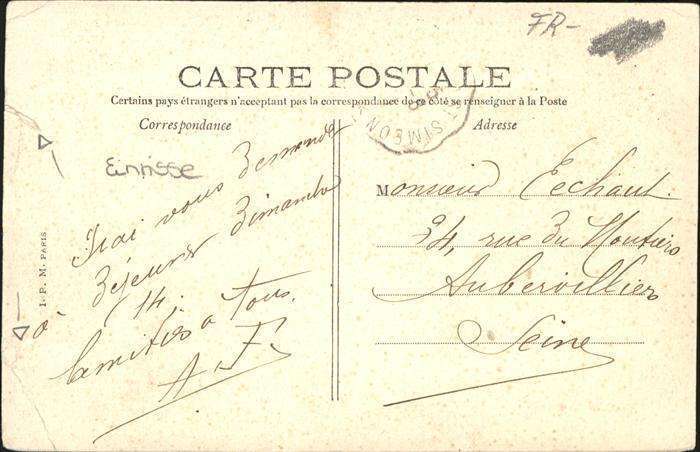 FR-
CARTE POSTALE
Certains pays étrangers n'acceptant pas la correspondance de ce côté se renseigner à la Poste
Correspondance
Adresse
ST SIMEON
I. P. M. PARIS
J'rai vous demander
à déjeuner dimanche
14.
amitiés a Tous.
A. F.
Monsieur Echaut
24, rue du Moutiers
Aubervilliers
Seine